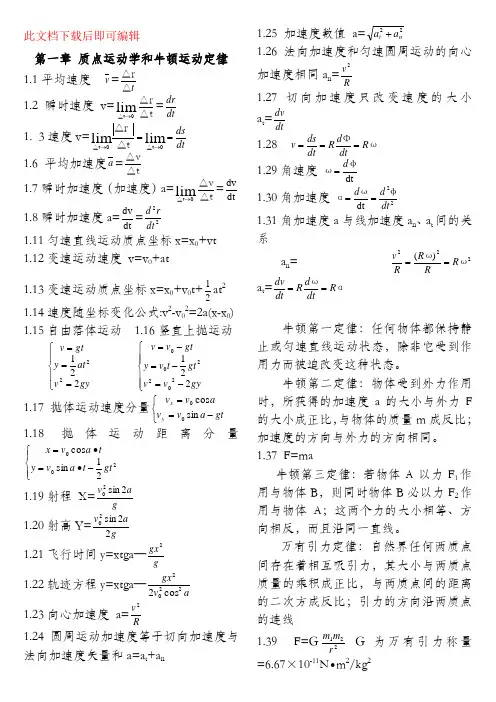 此文档下载后即可编辑
第一章 质点运动学和牛顿运动定律
1.1平均速度 v̅=△r/△t
1.2 瞬时速度 v=lim(△t→0) △r/△t=dr/dt
1. 3速度v=lim(△t→0) |△r|/△t=lim(△t→0)=ds/dt
1.6 平均加速度a̅=△v/△t
1.7瞬时加速度（加速度）a=lim(△t→0) △v/△t=dv/dt
1.8瞬时加速度a=dv/dt=d²r/dt²
1.11匀速直线运动质点坐标x=x₀+vt
1.12变速运动速度 v=v₀+at
1.13变速运动质点坐标x=x₀+v₀t+1/2at²
1.14速度随坐标变化公式:v²-v₀²=2a(x-x₀)
1.15自由落体运动 1.16竖直上抛运动
{v=gt {v=v₀-gt
{y=1/2at² {y=v₀t-1/2gt²
{v²=2gy {v²=v₀²-2gy
1.17 抛体运动速度分量{vₓ=v₀cosa
{v_y=v₀sina-gt
1.18 抛体运动距离分量
{x=v₀cosa•t
{y=v₀sina•t-1/2gt²
1.19射程 X=v₀²sin2a/g
1.20射高Y=v₀²sin2a/2g
1.21飞行时间y=xtga—gx²/g
1.22轨迹方程y=xtga—gx²/2v₀²cos²a
1.23向心加速度 a=v²/R
1.24 圆周运动加速度等于切向加速度与
法向加速度矢量和a=aₜ+aₙ
1.25 加速度数值 a=√(aₜ²+aₙ²)
1.26 法向加速度和匀速圆周运动的向心
加速度相同aₙ=v²/R
1.27 切向加速度只改变速度的大小
aₜ=dv/dt
1.28 v=ds/dt=RdΦ/dt=Rω
1.29角速度 ω=dφ/dt
1.30角加速度 α=dω/dt=d²φ/dt²
1.31角加速度a与线加速度aₙ、aₜ间的关
系
aₙ= v²/R=(Rω)²/R=Rω²
aₜ=dv/dt=Rdω/dt=Rα
牛顿第一定律：任何物体都保持静
止或匀速直线运动状态，除非它受到作
用力而被迫改变这种状态。
牛顿第二定律：物体受到外力作用
时，所获得的加速度a的大小与外力F
的大小成正比，与物体的质量m成反比；
加速度的方向与外力的方向相同。
1.37 F=ma
牛顿第三定律：若物体A以力F₁作
用与物体B，则同时物体B必以力F₂作
用与物体A；这两个力的大小相等、方
向相反，而且沿同一直线。
万有引力定律：自然界任何两质点
间存在着相互吸引力，其大小与两质点
质量的乘积成正比，与两质点间的距离
的二次方成反比；引力的方向沿两质点
的连线
1.39 F=G m₁m₂/r² G为万有引力称量
=6.67×10⁻¹¹N•m²/kg²